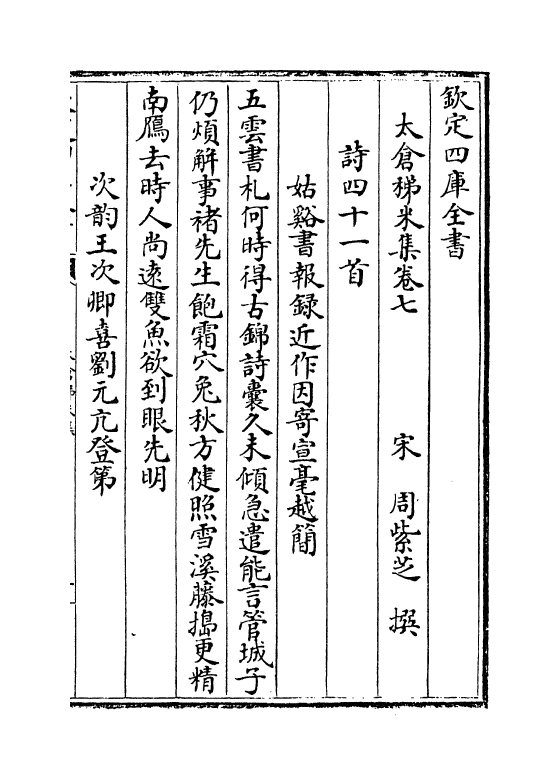 欽定四庫全書
太倉稊米集卷七
宋 周紫芝 撰
詩四十一首
姑谿書報録近作因寄宣毫越簡
五雲書札何時得古錦詩囊久未傾急遣能言管城子
仍煩解事褚先生飽霜穴兔秋方健照雪溪藤搗更精
南鴈去時人尚逺雙魚欲到眼先明
次韵王次卿喜劉元亢登第